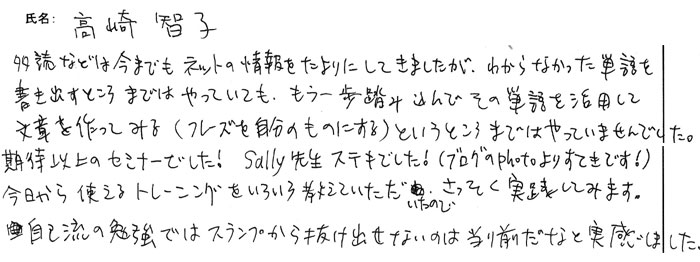 氏名: 高崎 智子
多読などは今までもネットの情報をたよりにしてきましたが、わからなかった単語を
書き出すところまではやっていても、もう一歩踏み込んでその単語を活用して
文章を作ってみる(フレーズを自分のものにする)というところまではやっていませんでした。
期待以上のセミナーでした! Sally先生ステキでした!(ブログのphotoよりすてきです!)
今日から使えるトレーニングをいろいろ教えていただいたので、さっそく実践してみます。
自己流の勉強ではスランプから抜け出せないのは当り前だなと実感しました。